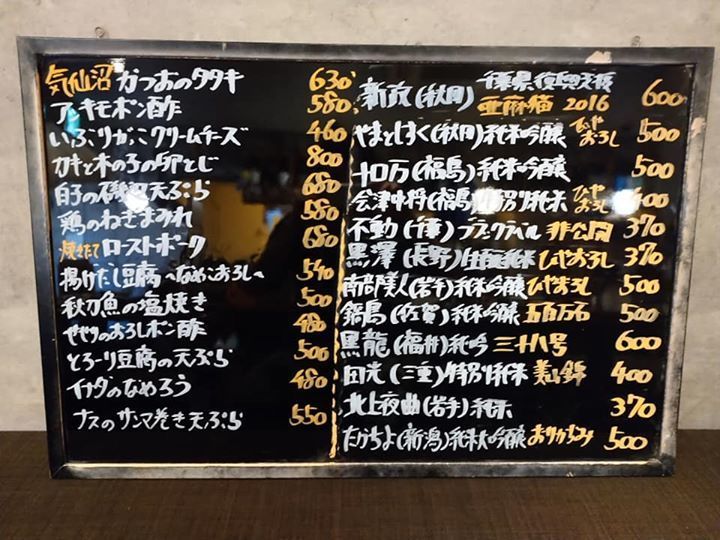 気仙沼 かつおのタタキ 630
アンキモポン酢 580
いぶりがっこクリームチーズ 460
カキと木の子の卵とじ 800
白子の磯辺天ぷら 680
鶏のねぎまみれ 580
焼きたて ローストポーク 680
揚げだし豆腐 〜なめこおろし〜 540
秋刀魚の塩焼き 500
ヤヤリのおろしポン酢 480
とろーり豆腐の天ぷら 500
イナダのなめろう 480
ナスのサンマ巻き天ぷら 550
新政(秋田) 千葉県復興支援 亜麻猫 2016 600
やまとしずく(秋田)純米吟醸 ひやおろし 500
十ロ万(福島)純米吟醸 500
会津中将(福島)特別純米 ひやおろし 400
不動(千葉) ブラックラベル 非公開 370
黒澤(長野)生酛純米 ひやおろし 370
南部美人(岩手)純米吟醸 ひやおろし 500
鍋島(佐賀)純米吟醸 五百万石 500
黒龍(福井)純吟 三十八号 600
田光(三重)特別純米 美山錦 400
北上夜曲(岩手)純米 370
たかちよ(新潟)純米大吟醸 おりがらみ 500